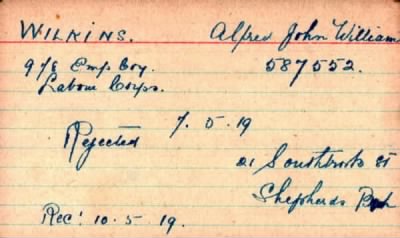 WILKINS. Alfred John William
978 Emp. Coy. 587552.
Labour Corps.
7.5.19
Rejected
21 Southbrook St
Shepherds Bsh
Rec: 10.5.19.